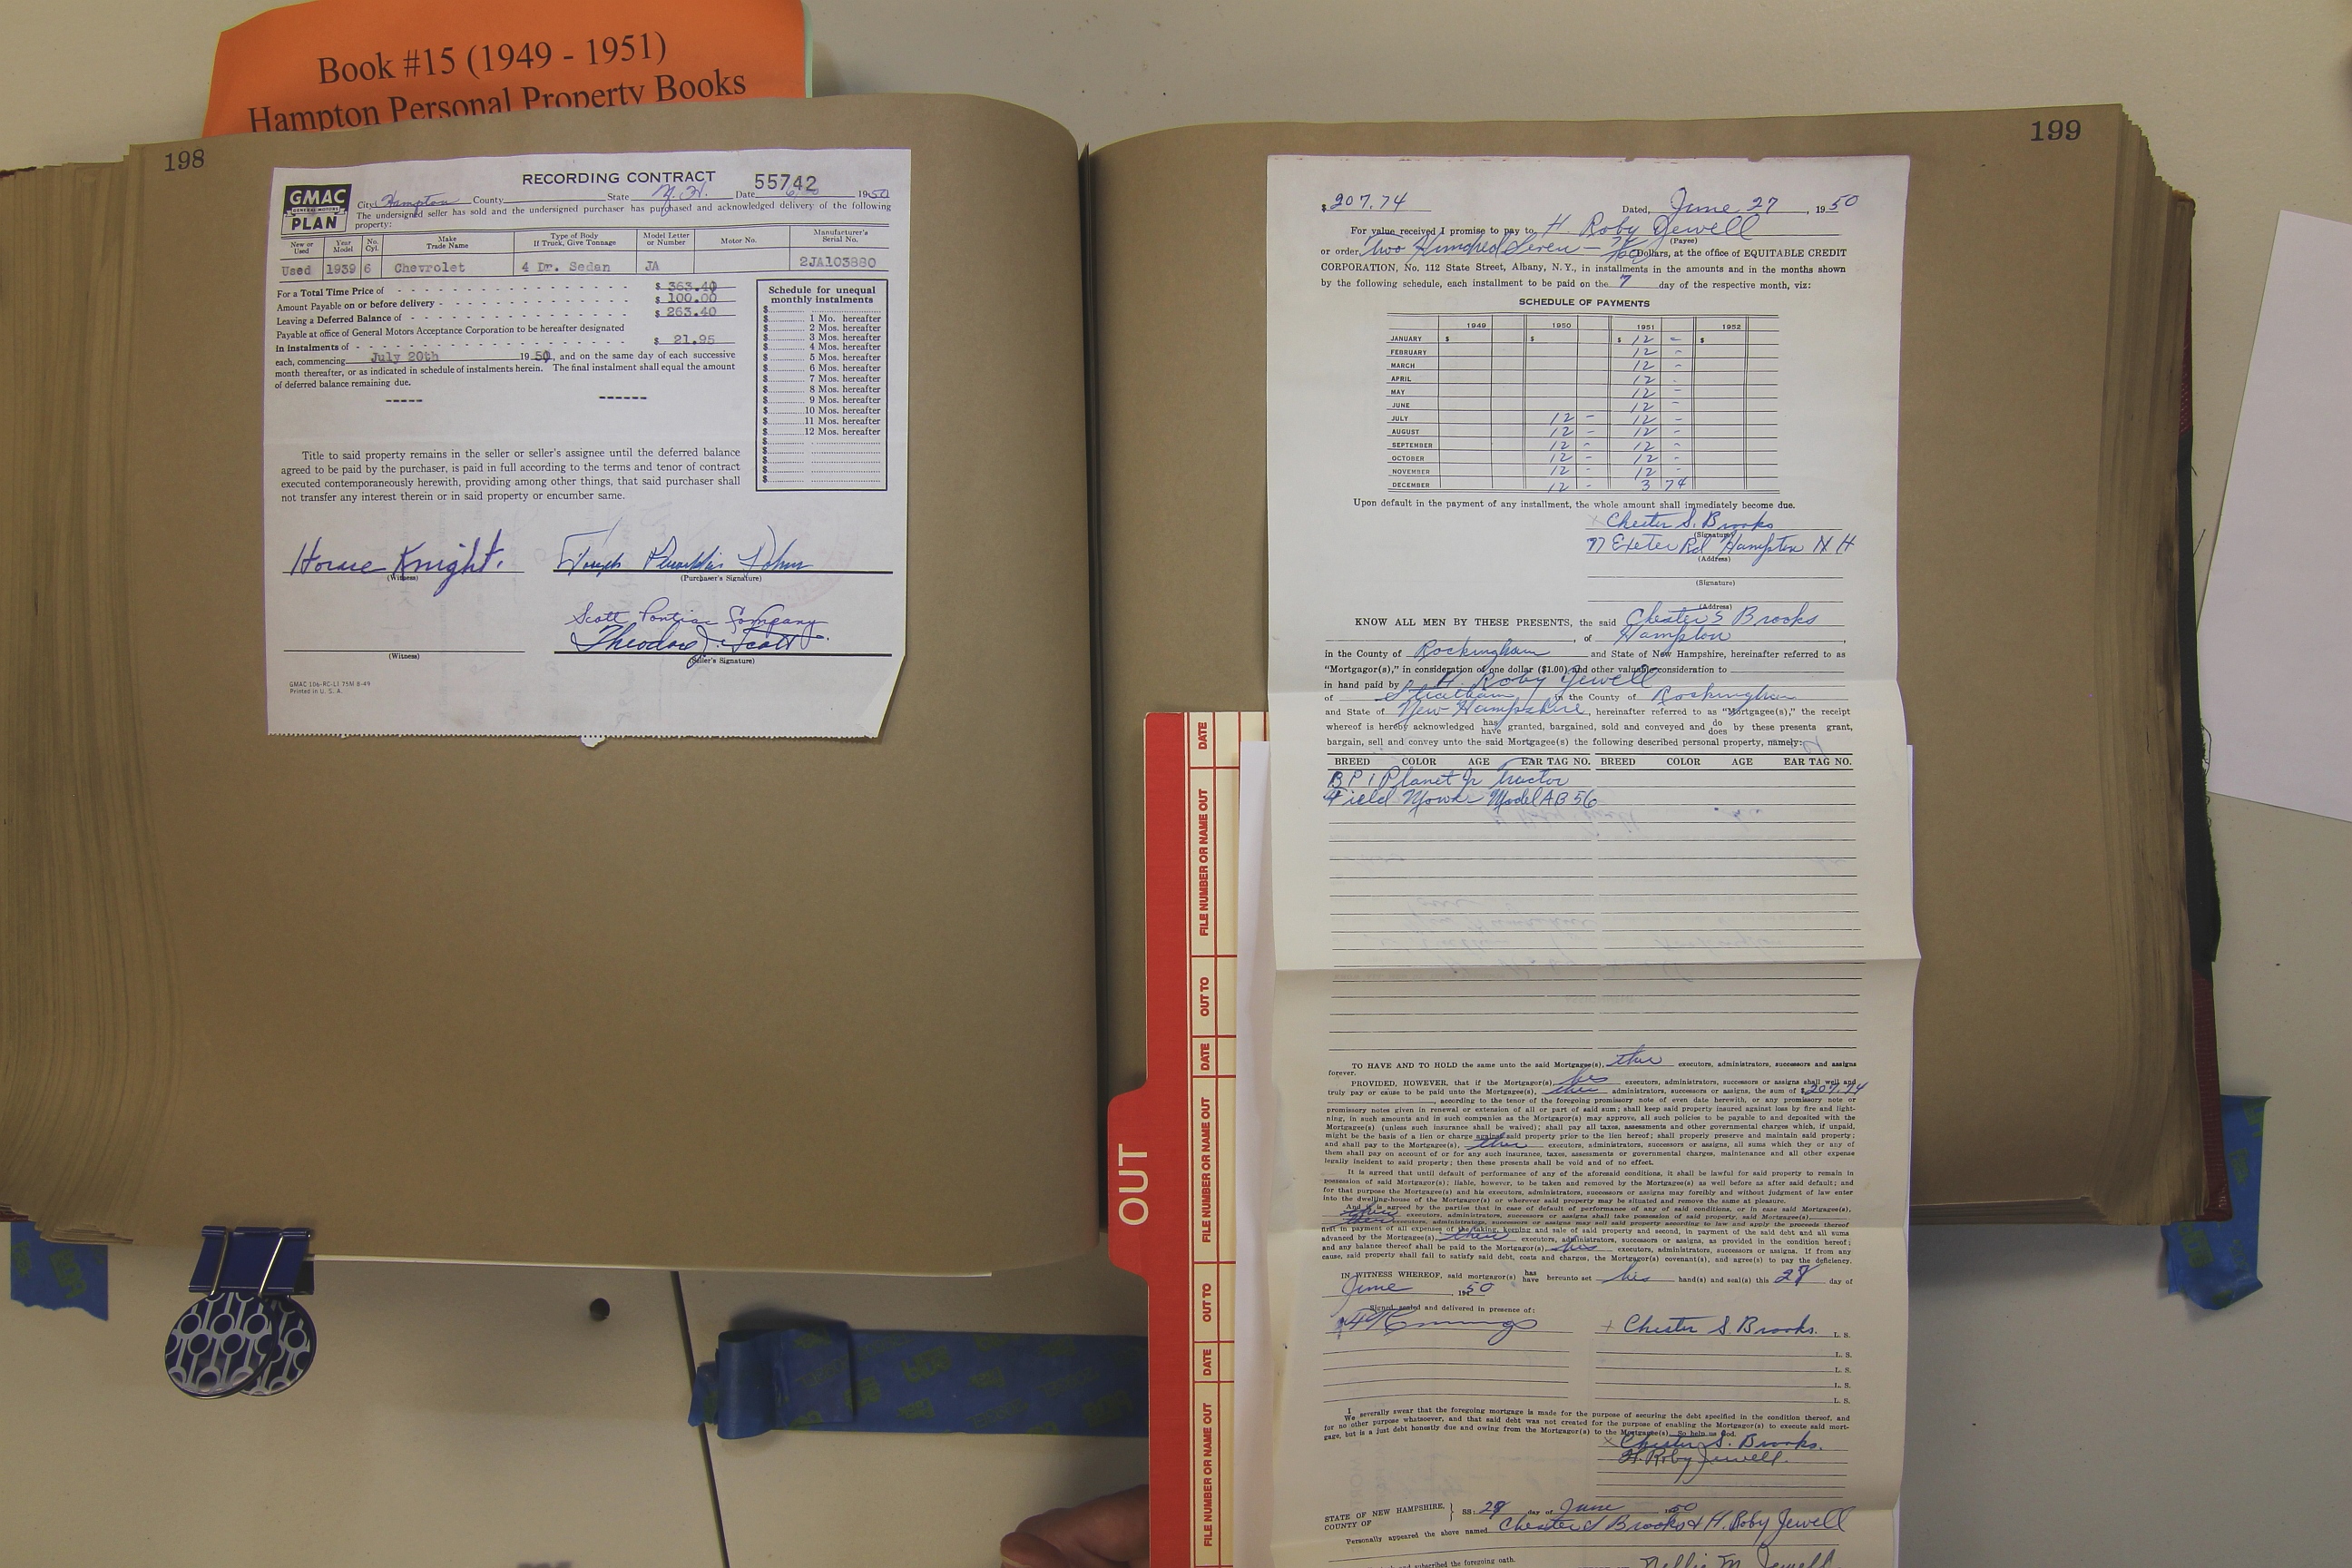 Book #15 (1949 - 1951)
Hampton Personal Property Books
198
RECORDING CONTRACT 55742
GMAC
GENERAL MOTORS
PLAN
City Hampton County State N.H. Date 1950
The undersigned seller has sold and the undersigned purchaser has purchased and acknowledged delivery of the following
property:
New or Used Year Model No. Cyl. Make Trade Name Type of Body If Truck, Give Tonnage Model Letter or Number Motor No. Manufacturer's Serial No.
Used 1939 6 Chevrolet 4 Dr. Sedan JA 2JA103880
For a Total Time Price of $ 363.40
Amount Payable on or before delivery $ 100.00
Leaving a Deferred Balance of $ 263.40
Payable at office of General Motors Acceptance Corporation to be hereafter designated
in instalments of $ 21.95
each, commencing July 20th 1950, and on the same day of each successive
month thereafter, or as indicated in schedule of instalments herein. The final instalment shall equal the amount
of deferred balance remaining due.
Schedule for unequal
monthly instalments
$
$ 1 Mo. hereafter
$ 2 Mos. hereafter
$ 3 Mos. hereafter
$ 4 Mos. hereafter
$ 5 Mos. hereafter
$ 6 Mos. hereafter
$ 7 Mos. hereafter
$ 8 Mos. hereafter
$ 9 Mos. hereafter
$ 10 Mos. hereafter
$ 11 Mos. hereafter
$ 12 Mos. hereafter
$
$
$
$
Title to said property remains in the seller or seller's assignee until the deferred balance
agreed to be paid by the purchaser, is paid in full according to the terms and tenor of contract
executed contemporaneously herewith, providing among other things, that said purchaser shall
not transfer any interest therein or in said property or encumber same.
Knight.
(Witness) (Purchaser's Signature)
Scott Pontiac Company
Theodore J. Scott
(Witness) (Seller's Signature)
GMAC 106-RC-L1 75M 8-49
Printed in U. S. A.
199
$ 207.74 Dated, June 27, 1950
For value received I promise to pay to H. Roby Jewell
(Payee)
or order Two Hundred Seven — 74/100 Dollars, at the office of EQUITABLE CREDIT
CORPORATION, No. 112 State Street, Albany, N. Y., in installments in the amounts and in the months shown
by the following schedule, each installment to be paid on the 7 day of the respective month, viz:
SCHEDULE OF PAYMENTS
1949 1950 1951 1952
JANUARY $ $ $ 12 - $
FEBRUARY 12 -
MARCH 12 -
APRIL 12 -
MAY 12 -
JUNE 12 -
JULY 12 - 12 -
AUGUST 12 - 12 -
SEPTEMBER 12 - 12 -
OCTOBER 12 - 12 -
NOVEMBER 12 - 12 -
DECEMBER 12 - 3 74
Upon default in the payment of any installment, the whole amount shall immediately become due.
x Chester S. Brooks
(Signature)
77 Exeter Rd Hampton N H
(Address)
(Signature)
(Address)
KNOW ALL MEN BY THESE PRESENTS, the said Chester S Brooks
, of Hampton
in the County of Rockingham and State of New Hampshire, hereinafter referred to as
"Mortgagor(s)," in consideration of one dollar ($1.00) and other valuable consideration to
in hand paid by H. Roby Jewell
of Stratham in the County of Rockingham
and State of New Hampshire, hereinafter referred to as "Mortgagee(s)," the receipt
whereof is hereby acknowledged has have granted, bargained, sold and conveyed and do does by these presents grant,
bargain, sell and convey unto the said Mortgagee(s) the following described personal property, namely:
BREED COLOR AGE EAR TAG NO. BREED COLOR AGE EAR TAG NO.
B P 1 Planet Jr Tractor
Field Mower Model AB 56
TO HAVE AND TO HOLD the same unto the said Mortgagee(s), executors, administrators, successors and assigns
forever.
PROVIDED, HOWEVER, that if the Mortgagor(s), his executors, administrators, successors or assigns shall well and
truly pay or cause to be paid unto the Mortgagee(s), administrators, successors or assigns, the sum of $207.74
, according to the tenor of the foregoing promissory note of even date herewith, or any promissory note or
promissory notes given in renewal or extension of all or part of said sum; shall keep said property insured against loss by fire and light-
ning, in such amounts and in such companies as the Mortgagor(s) may approve, all such policies to be payable to and deposited with the
Mortgagee(s) (unless such insurance shall be waived); shall pay all taxes, assessments and other governmental charges which, if unpaid,
might be the basis of a lien or charge against said property prior to the lien hereof; shall properly preserve and maintain said property;
and shall pay to the Mortgagee(s), executors, administrators, successors or assigns, all sums which they or any of
them shall pay on account of or for any such insurance, taxes, assessments or governmental charges, maintenance and all other expense
legally incident to said property; then these presents shall be void and of no effect.
It is agreed that until default of performance of any of the aforesaid conditions, it shall be lawful for said property to remain in
possession of said Mortgagor(s); liable, however, to be taken and removed by the Mortgagee(s) as well before as after said default; and
for that purpose the Mortgagee(s) and his executors, administrators, successors or assigns may forcibly and without judgment of law enter
into the dwelling-house of the Mortgagor(s) or wherever said property may be situated and remove the same at pleasure.
And it is agreed by the parties that in case of default of performance of any of said conditions, or in case said Mortgagee(s),
executors, administrators, successors or assigns shall take possession of said property, said Mortgagee(s),
executors, administrators, successors or assigns may sell said property according to law and apply the proceeds thereof
first in payment of all expenses of the taking, keeping and sale of said property and second, in payment of the said debt and all sums
advanced by the Mortgagee(s), executors, administrators, successors or assigns, as provided in the condition hereof;
and any balance thereof shall be paid to the Mortgagor(s), his executors, administrators, successors or assigns. If from any
cause, said property shall fail to satisfy said debt, costs and charges, the Mortgagor(s) covenant(s), and agree(s) to pay the deficiency.
IN WITNESS WHEREOF, said mortgagor(s) has have hereunto set his hand(s) and seal(s) this 28 day of
June, 1950
Signed, sealed and delivered in presence of:
+ Chester S. Brooks. L. S.
L. S.
L. S.
L. S.
L. S.
I
We severally swear that the foregoing mortgage is made for the purpose of securing the debt specified in the condition thereof, and
for no other purpose whatsoever, and that said debt was not created for the purpose of enabling the Mortgagor(s) to execute said mort-
gage, but is a just debt honestly due and owing from the Mortgagor(s) to the Mortgagee(s). So help us God.
x Chester S. Brooks.
H. Roby Jewell.
STATE OF NEW HAMPSHIRE,
COUNTY OF } SS: 28 day of June 1950
Personally appeared the above named Chester S Brooks & H. Roby Jewell
and subscribed the foregoing oath.
Nellie M. Jewell
OUT
DATE
FILE NUMBER OR NAME OUT
OUT TO
DATE
FILE NUMBER OR NAME OUT
OUT TO
DATE
FILE NUMBER OR NAME OUT